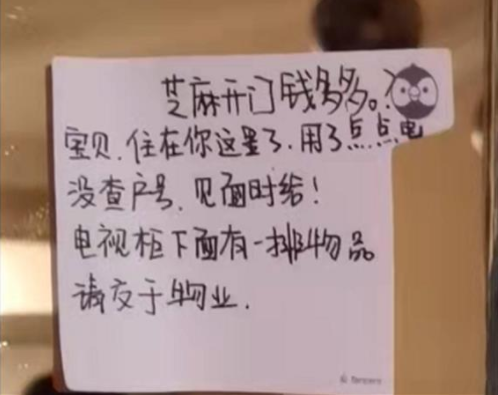 芝麻开门钱多多。
宝贝.住在你这里了.用了点点电
没查户号、见面时给!
电视柜下面有一排物品
请交于物业.